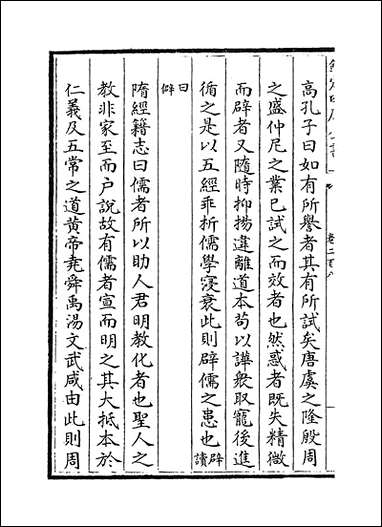 高孔子曰如有所譽者其有所試矣唐虞之隆殷周
之盛仲尼之業已試之而效者也然惑者既失精微
而辟者又隨時抑揚違離道本茍以譁衆取寵後進
循之是以五經乖析儒學寖衰此則辟儒之患也辟讀
曰僻
隋經籍志曰儒者所以助人君明教化者也聖人之
教非家至而户說故有儒者宣而明之其大抵本於
仁義及五常之道黄帝堯舜禹湯文武咸由此則周